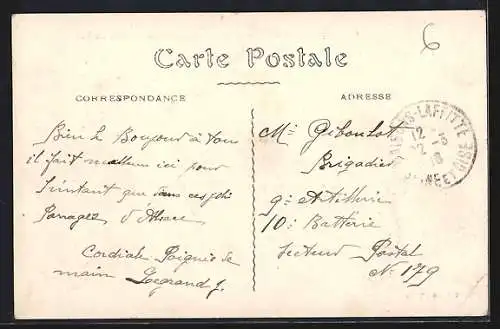 6
Carte Postale
CORRESPONDANCE
ADRESSE
Bien le Bonjour à tous
il fait meilleur ici pour
l'instant que dans ces jolis
Parrages d'Alsace
Cordiale Poignée de
main Legrand J.
Mr Giboulot
Brigadier
9e Artillerie
10e Batterie
Secteur Postal
N. 179
MAISONS-LAFFITTE
12
SEINE ET OISE